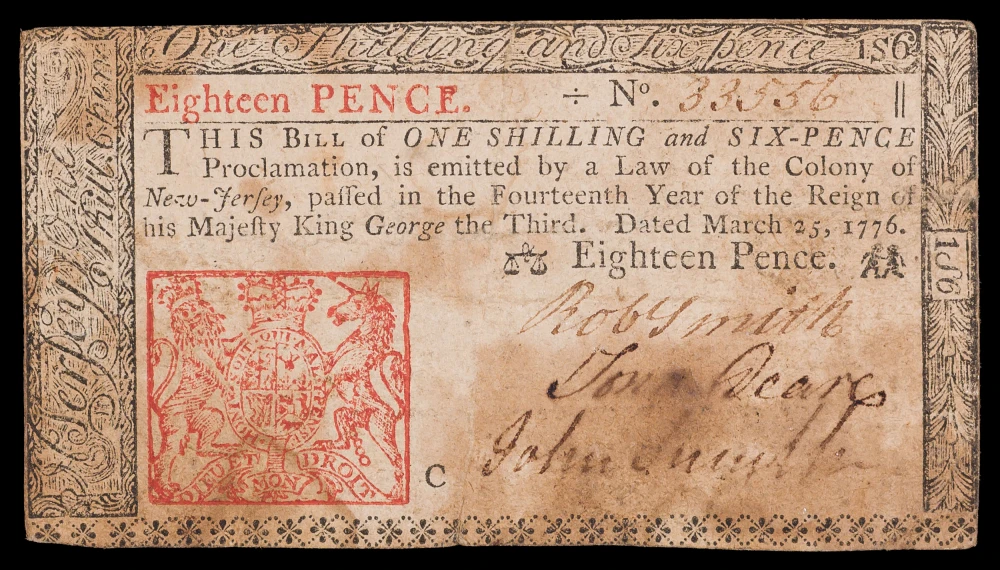 One Shilling and Six pence 1S6
Eighteen PENCE. ÷ No. 33556 ||
THIS BILL of ONE SHILLING and SIX-PENCE
Proclamation, is emitted by a Law of the Colony of
New-Jerſey, paſſed in the Fourteenth Year of the Reign of
his Majeſty King George the Third. Dated March 25, 1776.
Eighteen Pence.
Robt Smith
Deare
John
C
HONI SOIT QUI MAL Y PENSE
DIEU ET MON DROIT
N. Jerſey One Shill. 6 Pence
1S6